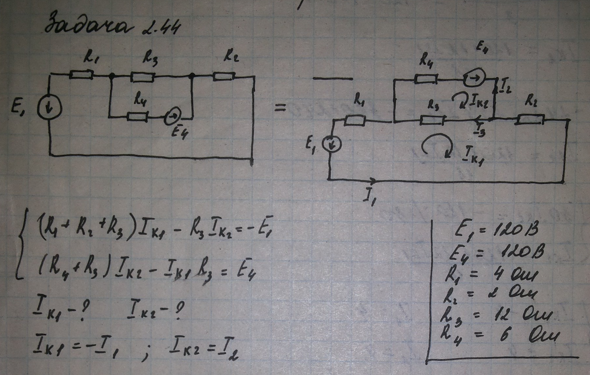 Задача 2.44
R₁ R₃ R₂
E₁
R₄
E₄
=
R₄ E₄
I₂
R₁ R₃ Iк₂ R₂
I₃
E₁
Iк₁
I₁
(R₁+R₂+R₃)Iк₁ - R₃Iк₂ = -E₁
(R₄+R₃)Iк₂ - Iк₁R₃ = E₄
Iк₁ - ? Iк₂ - ?
Iк₁ = -I₁ ; Iк₂ = I₂
E₁ = 120 В
E₄ = 120 В
R₁ = 4 Ом
R₂ = 2 Ом
R₃ = 12 Ом
R₄ = 6 Ом